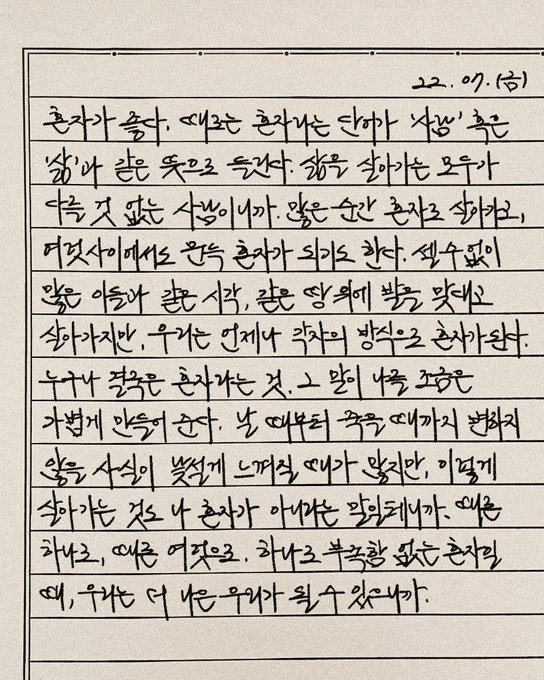 22. 07. (금)
혼자가 좋다. 때로는 혼자라는 단어가 '사람' 혹은
'삶'과 같은 뜻으로 들린다. 삶을 살아가는 모두가
다를 것 없는 사람이니까. 많은 순간 혼자로 살아가고,
여럿사이에서도 문득 혼자가 되기도 한다. 셀 수 없이
많은 이들과 같은 시각, 같은 땅 위에 발을 맞대고
살아가지만, 우리는 언제나 각자의 방식으로 혼자가 된다.
누구나 결국은 혼자라는 것. 그 말이 나를 조금은
가볍게 만들어 준다. 날 때부터 죽을 때까지 변하지
않을 사실이 낯설게 느껴질 때가 많지만, 이렇게
살아가는 것도 나 혼자가 아니라는 말일테니까. 때론
하나로, 때론 여럿으로. 하나로 부족함 없는 혼자일
때, 우리는 더 나은 우리가 될 수 있으니까.